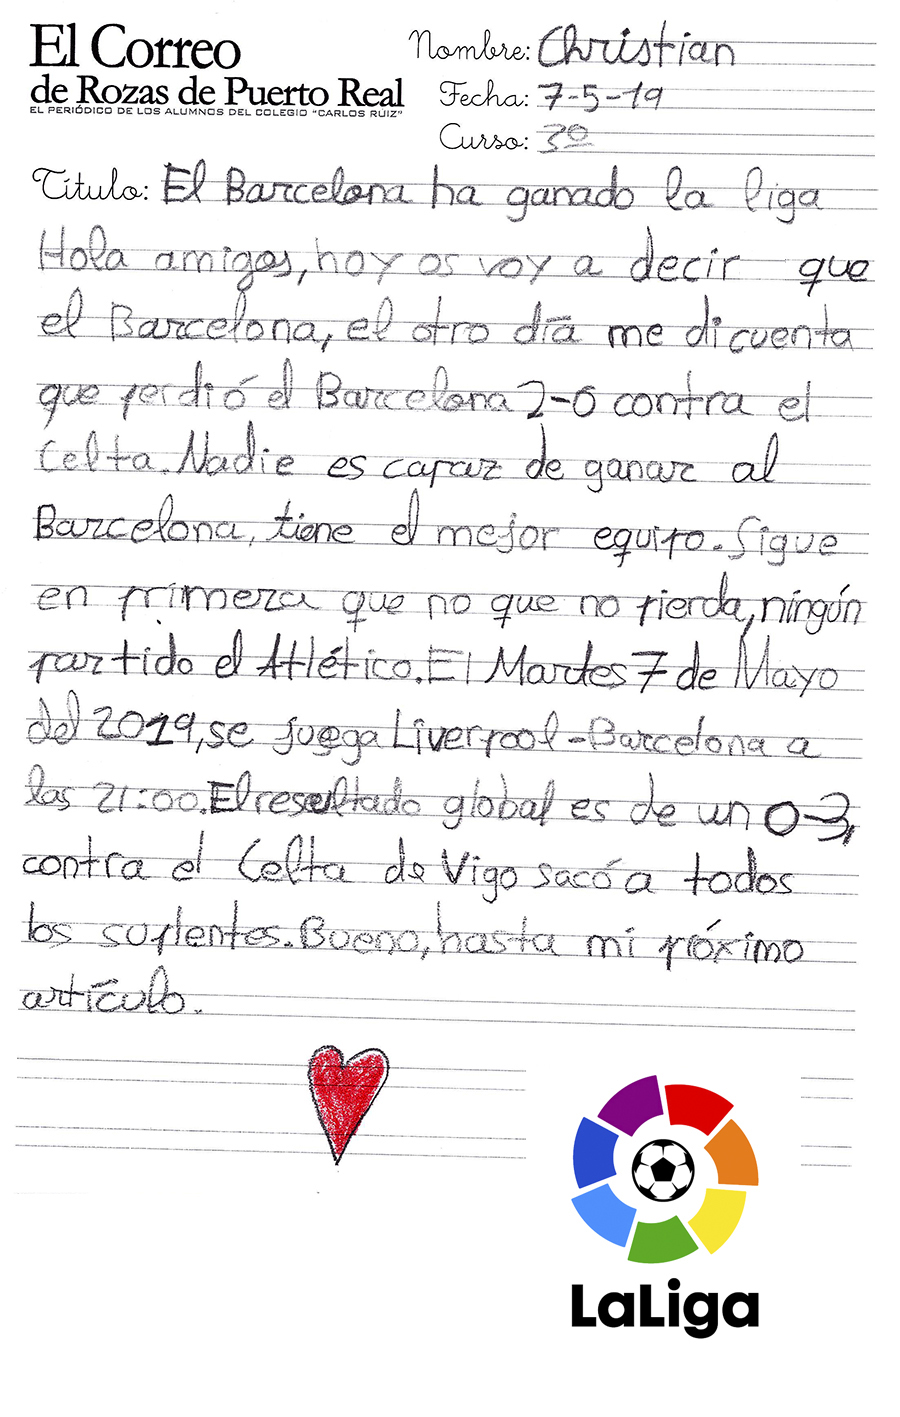 El Correo
de Rozas de Puerto Real
EL PERIÓDICO DE LOS ALUMNOS DEL COLEGIO "CARLOS RUIZ"
Nombre: Christian
Fecha: 7-5-19
Curso: 3º
Título: El Barcelona ha ganado la liga
Hola amigos, hoy os voy a decir que
el Barcelona, el otro día me di cuenta
que perdió el Barcelona 2-0 contra el
Celta. Nadie es capaz de ganar al
Barcelona, tiene el mejor equipo. Sigue
en primera que no que no pierda, ningún
partido el Atlético. El Martes 7 de Mayo
del 2019, se juega Liverpool-Barcelona a
las 21:00. El resultado global es de un 0-3,
contra el Celta de Vigo sacó a todos
los suplentes. Bueno, hasta mi próximo
artículo.
LaLiga